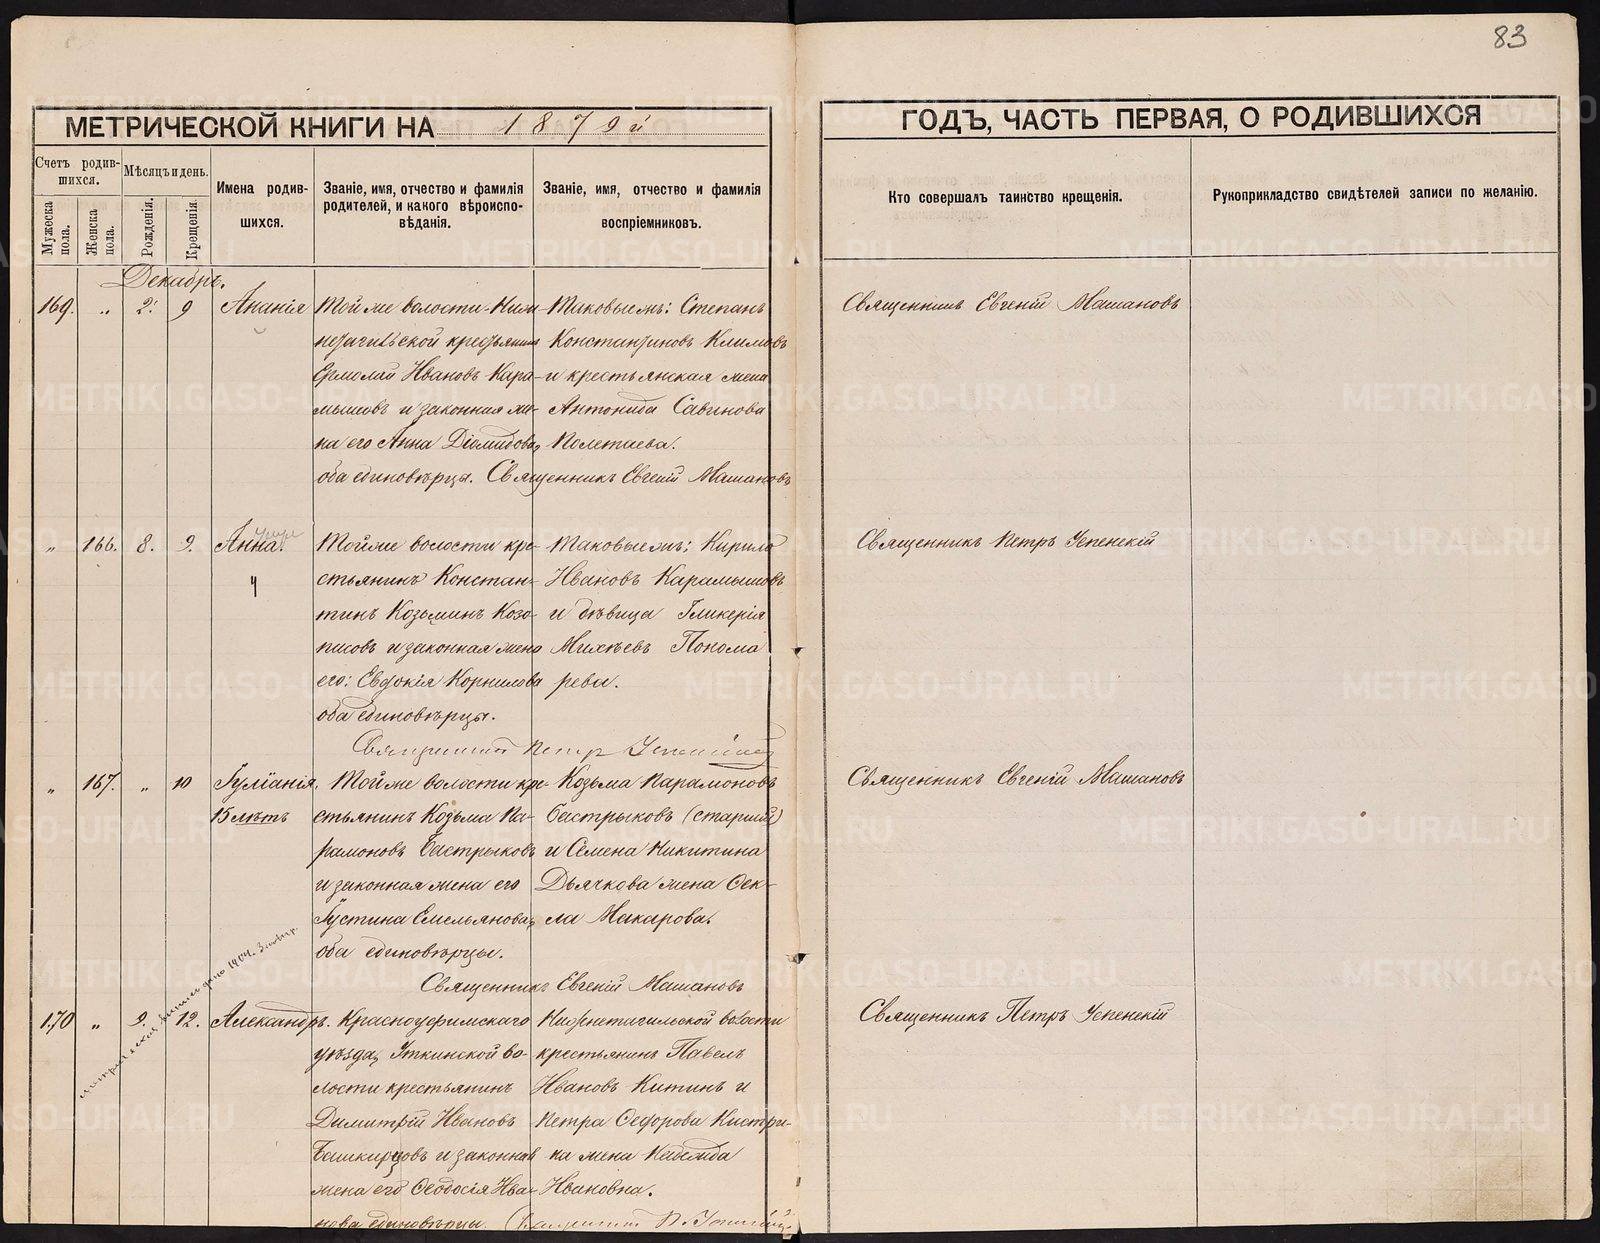 83
МЕТРИЧЕСКОЙ КНИГИ НА 1879й
ГОДЪ, ЧАСТЬ ПЕРВАЯ, О РОДИВШИХСЯ
Счетъ родив-
шихся.
Мужеска пола.
Женска пола.
Мѣсяцъ и день.
Рожденія.
Крещенія.
Имена родив-
шихся.
Званіе, имя, отчество и фамилія
родителей, и какого вѣроиспо-
вѣданія.
Званіе, имя, отчество и фамилія
воспріемниковъ.
Кто совершалъ таинство крещенія.
Рукоприкладство свидѣтелей записи по желанію.
Декабрь.
169. " 2. 9 Ананія
Той же волости Ниж-
нетагильской крестьянинъ
Ермолай Ивановъ Кара-
мышовъ и законная же-
на его Анна Діомидова,
оба единовѣрцы. Священникъ Евгеній Машановъ
Таковые жъ: Степанъ
Константиновъ Климовъ
и крестьянская жена
Антонида Савинова
Полетаева.
Священникъ Евгеній Машановъ
" 166. 8. 9. Анна.
Той же волости кре-
стьянинъ Констан-
тинъ Козьминъ Козо-
писовъ и законная жена
его: Евдокія Корнилова
оба единовѣрцы.
Таковые жъ: Кирило
Ивановъ Карамышовъ
и дѣвица Гликерія
Михѣевъ Понома
рева.
Священникъ Петръ Успенскій
Священникъ Петръ Успенскій
" 167. " 10 Гуліанія,
15 лѣтъ
Той же волости кре-
стьянинъ Козьма Па-
рамоновъ Бастрыковъ
и законная жена его
Густина Емельянова,
оба единовѣрцы.
Козьма Парамоновъ
Бастрыковъ (старшій)
и Семена Никитина
Дьячкова жена Ѳек-
ла Макарова.
Священникъ Евгеній Машановъ
Священникъ Евгеній Машановъ
170 " 9. 12. Александръ.
Красноуфимскаго
уѣзда, Уткинской во-
лости крестьянинъ
Димитрій Ивановъ
Башкирцовъ и законная
жена его Ѳеодосія Ива-
нова единовѣрцы. Священникъ П. Успенскій
Нижнетагильской волости
крестьянинъ Павелъ
Ивановъ Китинъ и
Петра Ѳедорова Кистри-
на жена Надежда
Ивановна.
Священникъ Петръ Успенскій
METRIKI.GASO-URAL.RU